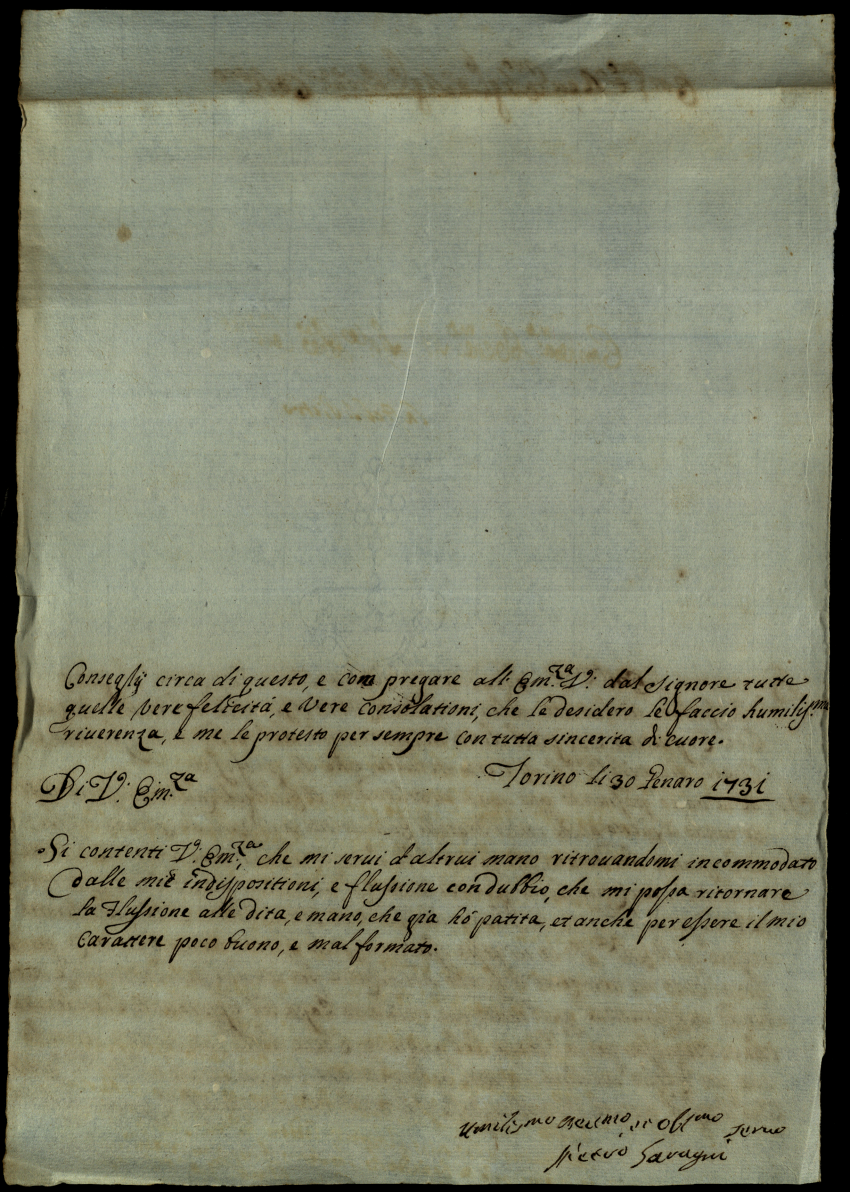 Conseglij circa di questo, e com pregare all' Em.za V. dal Signore tutte
quelle vere felicitá, e vere consolationi, che le desidero le faccio humiliss.ma
riverenza, e me le protesto per sempre con tutta sincerita di cuore.
Torino li 30 Genaro 1731
Di V. Em.za
Si contenti V. Em.za che mi servi d'altrui mano ritrovandomi incommodato
dalle mie indispositioni, e flussione con dubbio, che mi possa ritornare
la flussione alle dita, e mano, che gia hó patita, et anche per essere il mio
Carattere poco buono, e mal formato.
Umiliss.mo et Obl.mo Servo
Pietro